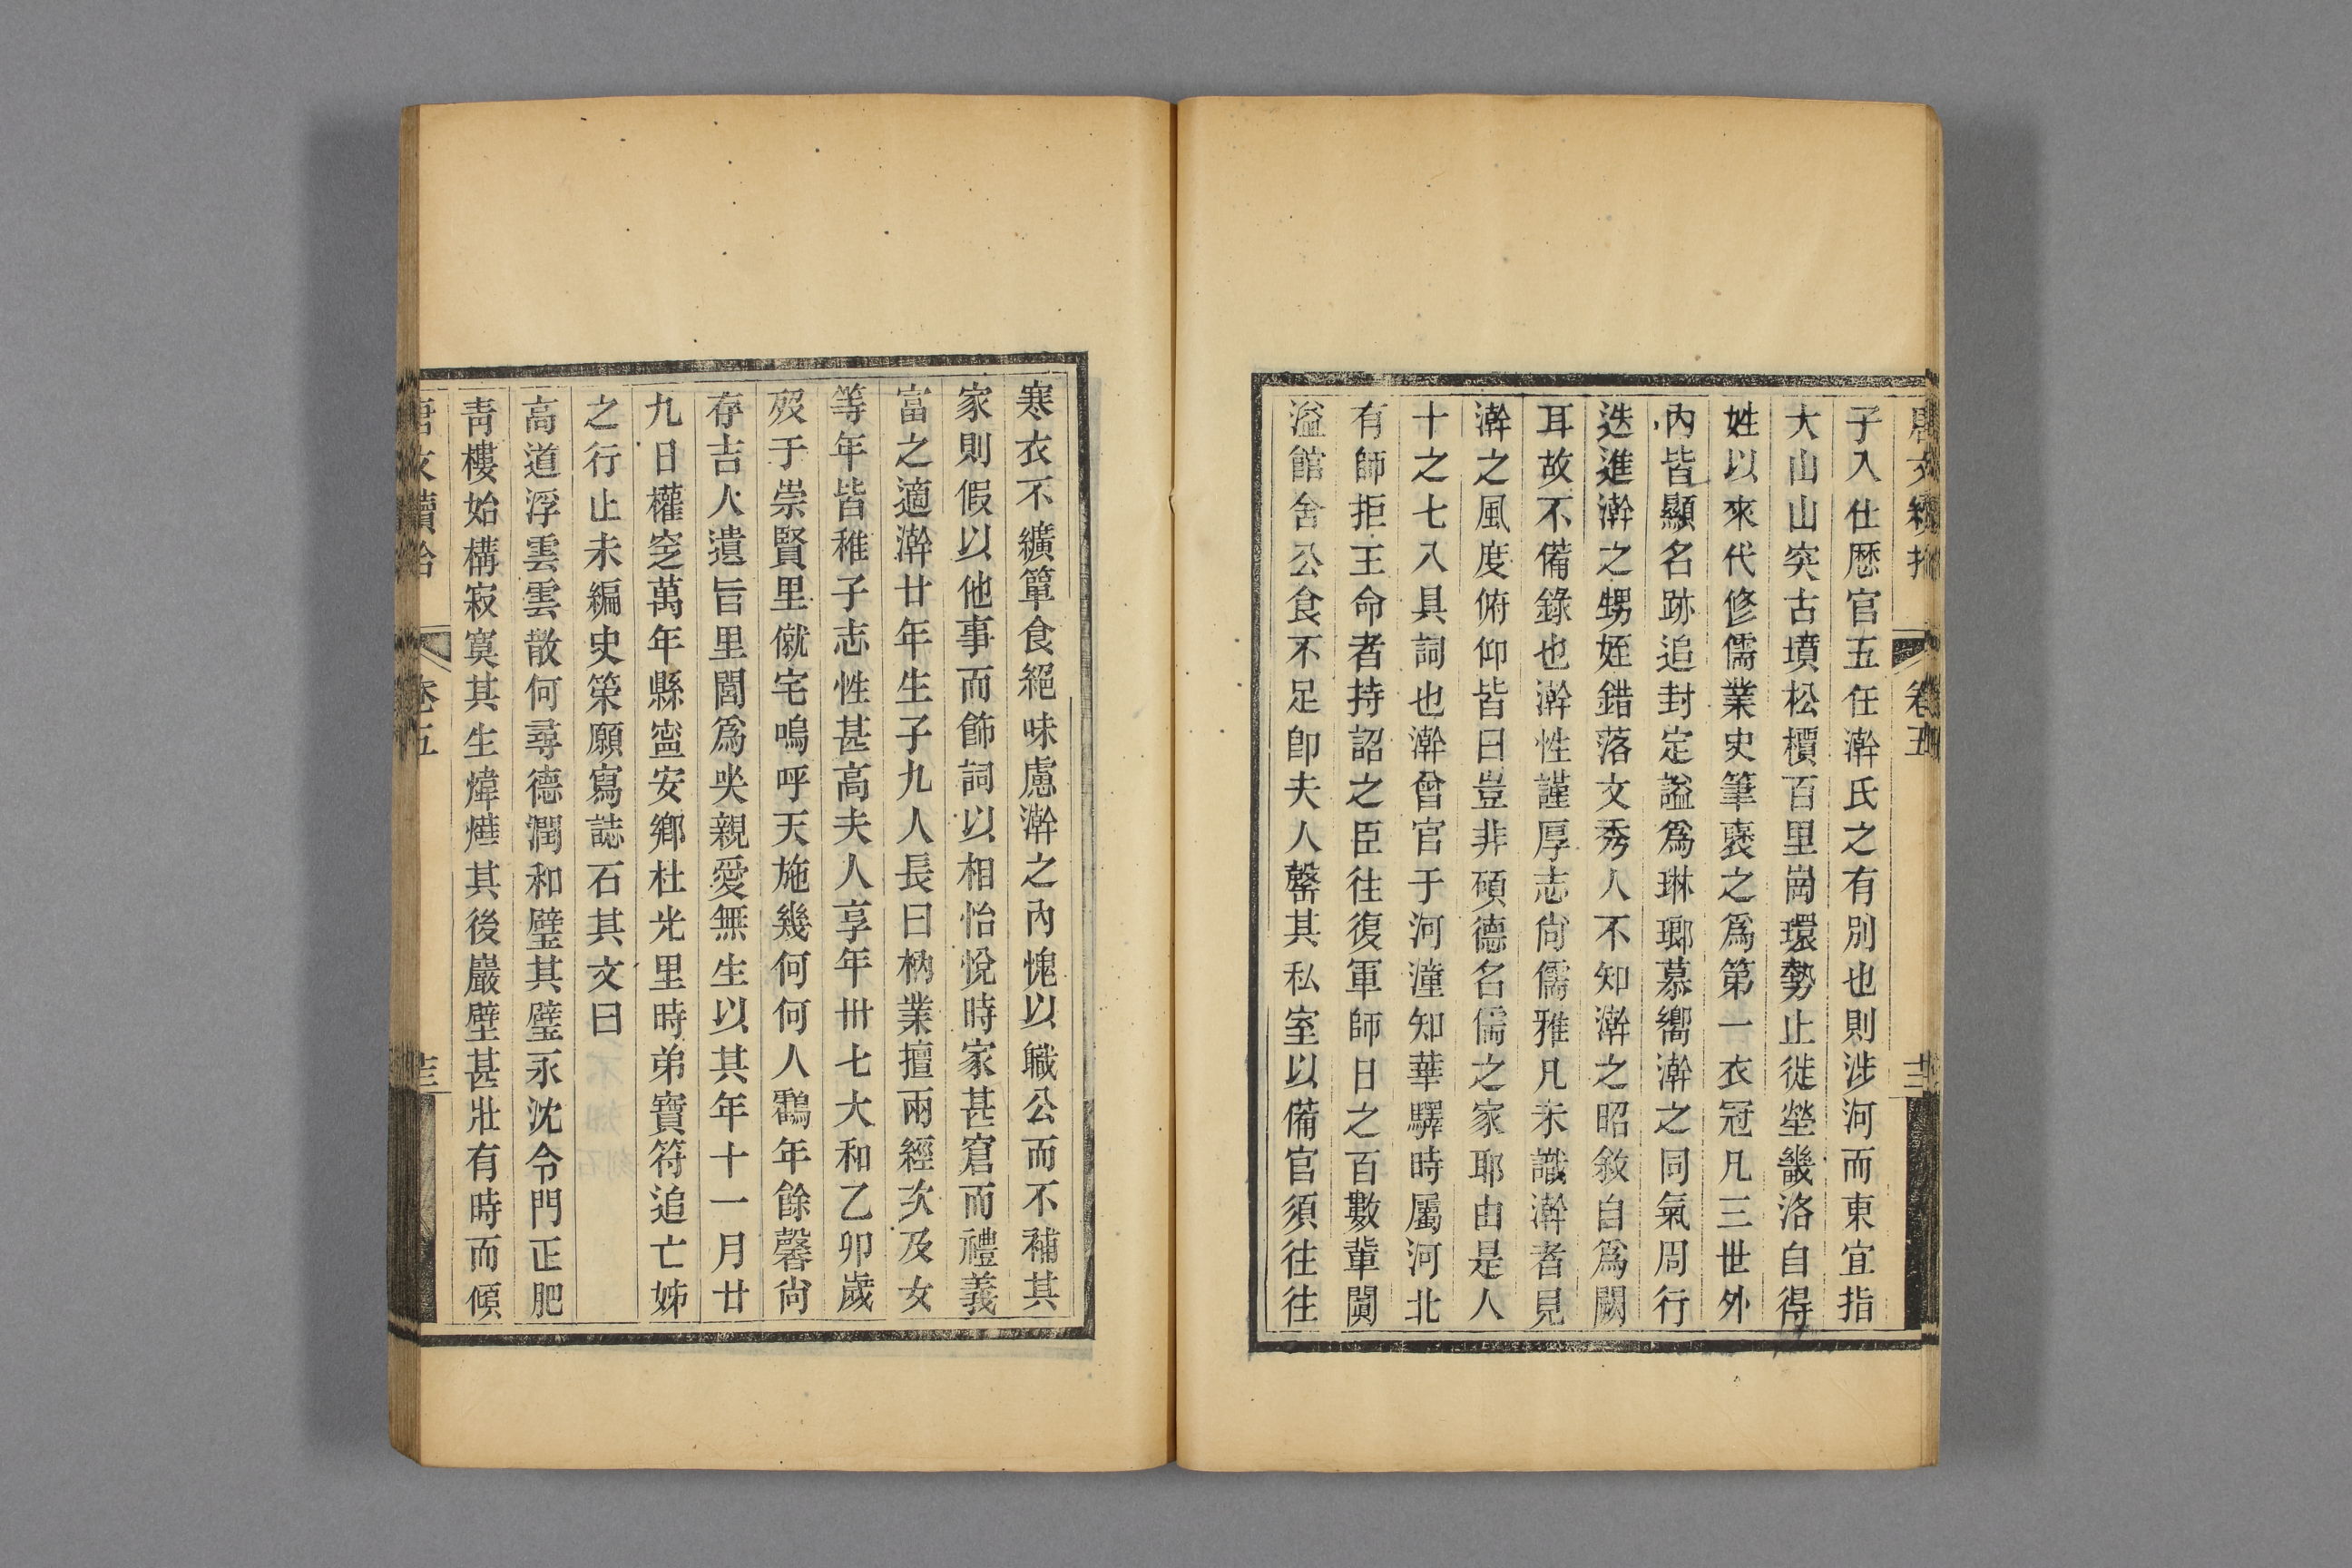 唐文續拾 卷五 十二
子入仕歷官五任澣氏之有別也則涉河而東宜指
大山山突古墳松檟百里崗環勢止徙塋畿洛自得
姓以來代修儒業史筆褒之爲第一衣冠凡三世外
內皆顯名跡追封定謚爲琳瑯慕嚮澣之同氣周行
迭進澣之甥姪錯落文秀人不知澣之昭敘自爲闕
耳故不備錄也澣性謹厚志尙儒雅凡未識澣者見
澣之風度俯仰皆曰豈非碩德名儒之家耶由是人
十之七入具詞也澣曾官于河潼知華驛時屬河北
有師拒王命者持詔之臣往復軍師日之百數輩闐
溢館舍公食不足卽夫人罄其私室以備官須往往
寒衣不纊簞食絕味慮澣之內愧以職公而不補其
家則假以他事而飾詞以相怡悅時家甚窘而禮義
富之適澣廿年生子九人長曰枘業擅兩經次及女
等年皆稚子志性甚高夫人享年卅七大和乙卯歲
歿于崇賢里僦宅嗚呼天施幾何何人鸛年餘馨尙
存吉人遺旨里閭爲哭親愛無生以其年十一月廿
九日權窆萬年縣寍安鄉杜光里時弟寶符追亡姊
之行止未編史策願寫誌石其文曰
高道浮雲雲散何尋德潤和璧其璧永沈令門正肥
靑樓始構寂寞其生煒燁其後巖壁甚壯有時而傾
唐文續拾 卷五 十三